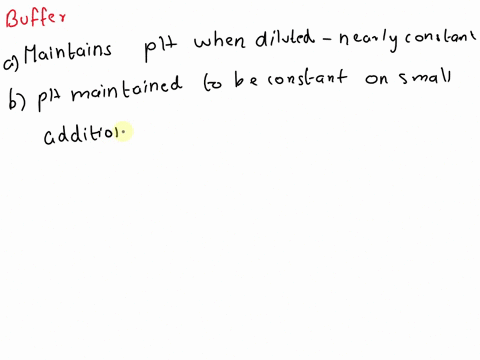 Buffer
a) Maintains pH when diluted - nearly constant
b) pH maintained to be constant on small
addition